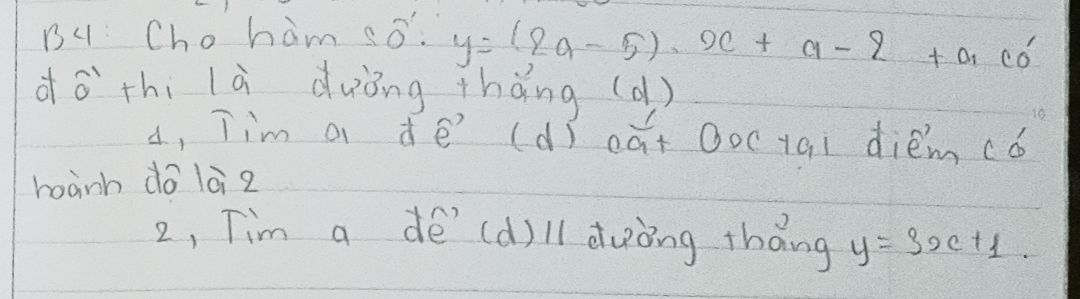 B4: Cho hàm số: y=(2a-5).x + a-2 + a có
đồ thị là đường thẳng (d)
1, Tìm a để (d) cắt Ox tại điểm có
hoành độ là 2
2, Tìm a để (d)// đường thẳng y=3x+1.